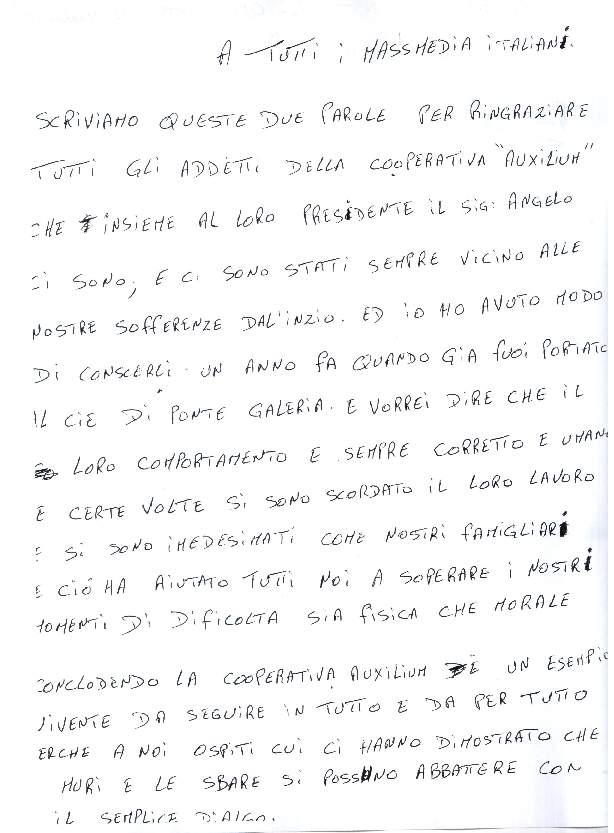 A TUTTI i MASSMEDIA iTALIANi.
SCRIVIAMO QUESTE DUE PAROLE PER RINGRAZIARE
TUTTI GLI ADDETTI DELLA COOPERATIVA "AUXILIUM"
CHE INSIEME AL LORO PRESIDENTE IL SIG: ANGELO
CI SONO, E CI SONO STATI SEMPRE VICINO ALLE
NOSTRE SOFFERENZE DAL'INZIO. ED IO HO AVUTO MODO
DI CONSCERLI UN ANNO FA QUANDO GIA FUOI PORTATO
IL CIE DI PONTE GALERIA. E VORREI DIRE CHE IL
LORO COMPORTAMENTO E SEMPRE CORRETTO E UMANO
E CERTE VOLTE SI SONO SCORDATO IL LORO LAVORO
E SI SONO IMEDESIMATI COME NOSTRI FAMIGLIARI
E CIÓ HA AIUTATO TUTTI NOI A SOPERARE I NOSTRI
MOMENTI DI DIFICOLTA SIA FISICA CHE MORALE
CONCLODENDO LA COOPERATIVA AUXILIUM È UN ESEMPIO
VIVENTE DA SEGUIRE IN TUTTO E DA PER TUTTO
ERCHE A NOI OSPITI CUI CI HANNO DIMOSTRATO CHE
MURI E LE SBARE SI POSSONO ABBATTERE CON
IL SEMPLICE DIALGO.